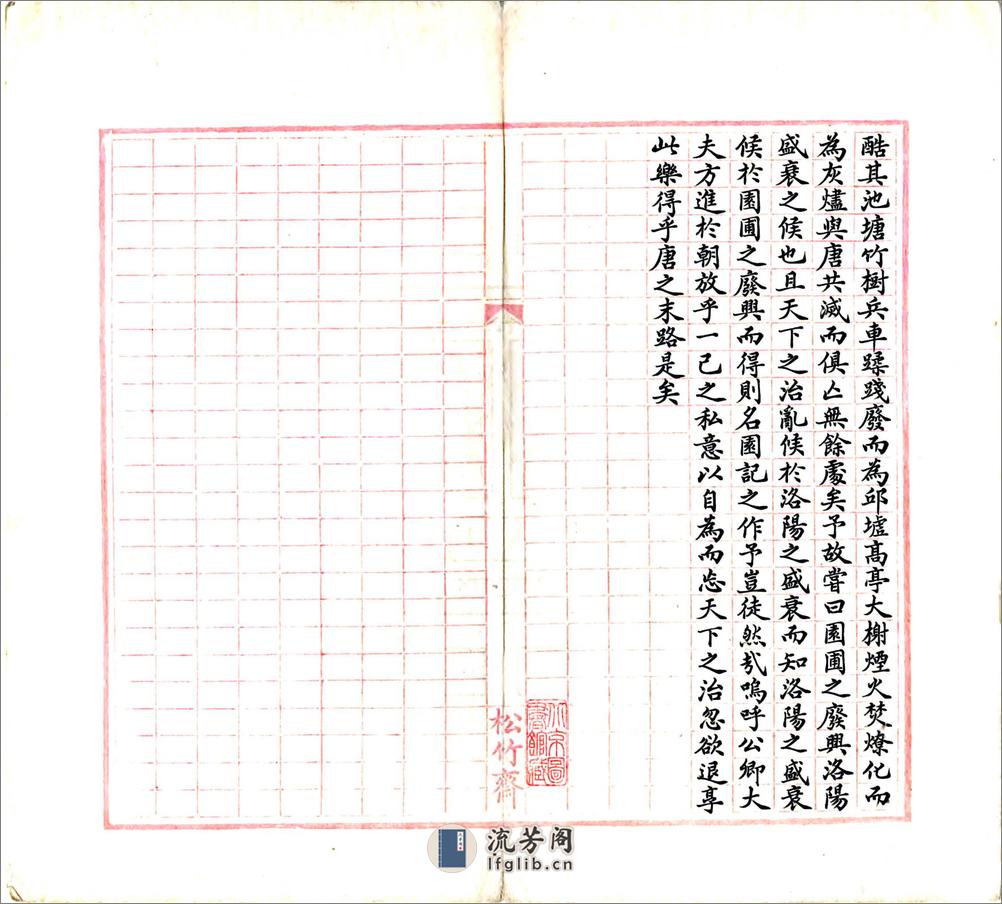 酷其池塘竹樹兵車蹂踐廢而為邱墟高亭大榭煙火焚燎化而
為灰燼與唐共滅而俱亡無餘處矣予故嘗曰園圃之廢興洛陽
盛衰之候也且天下之治亂候於洛陽之盛衰而知洛陽之盛衰
候於園圃之廢興而得則名園記之作予豈徒然哉嗚呼公卿大
夫方進於朝放乎一己之私意以自為而忘天下之治忽欲退享
此樂得乎唐之末路是矣
松竹齋
北京圖書館藏
流芳阁
lfglib.cn